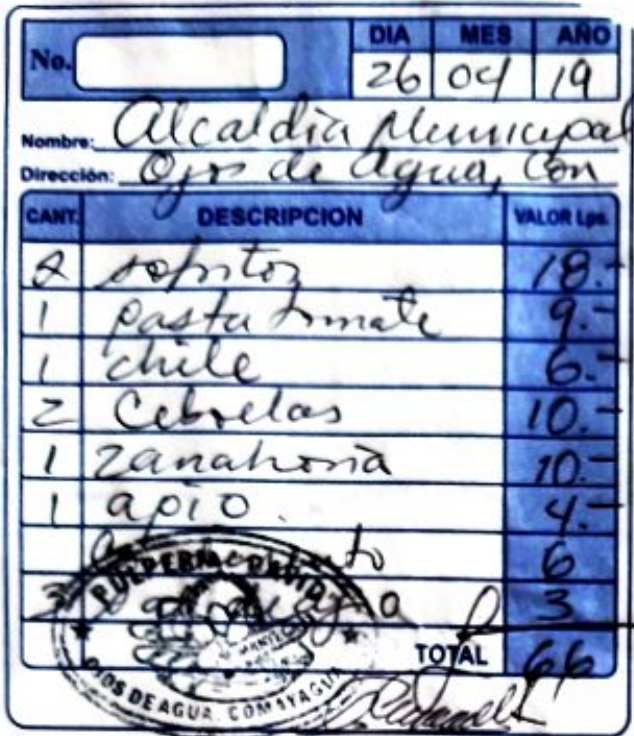 DIA MES AÑO
No. 26 04 19
Nombre: Alcaldia Municipal
Dirección: Ojos de Agua, Com
CANT. DESCRIPCION VALOR Lps.
2 sofritos 18.-
1 pasta tomate 9.-
1 chile 6.-
2 Cebollas 10.-
1 Zanahoria 10.-
1 apio. 4.-
6
3 3
TOTAL 66
PULPERIA DAVID
OJOS DE AGUA, COMAYAGUA